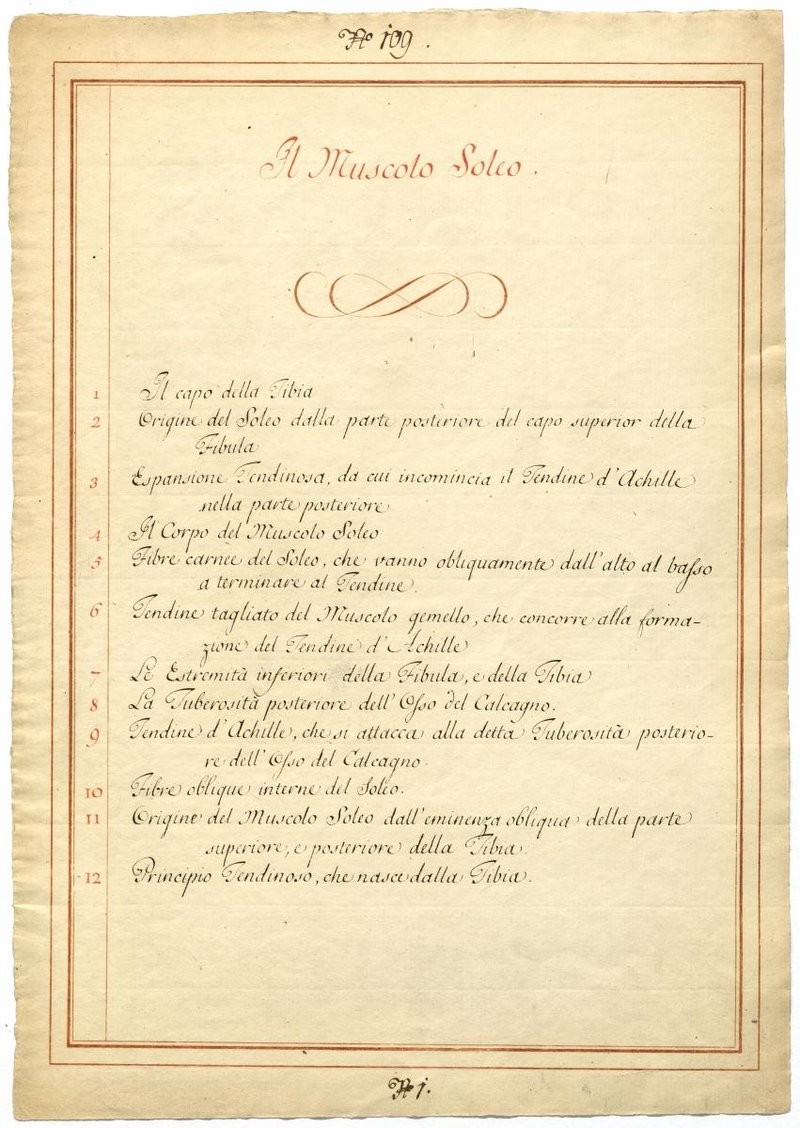 No 109.
Il Muscolo Soleo.
1 Il capo della Tibia
2 Origine del Soleo dalla parte posteriore del capo superior della
Fibula
3 Espansione Tendinosa, da cui incomincia il Tendine d'Achille
nella parte posteriore
4 Il Corpo del Muscolo Soleo
5 Fibre carnee del Soleo, che vanno obliquamente dall'alto al basso
a terminare al Tendine.
6 Tendine tagliato del Muscolo gemello, che concorre alla forma-
zione del Tendine d'Achille
7 Le Estremità inferiori della Fibula, e della Tibia
8 La Tuberosità posteriore dell'Osso del Calcagno.
9 Tendine d'Achille, che si attacca alla detta Tuberosità posterio-
re dell'Osso del Calcagno.
10 Fibre oblique interne del Soleo.
11 Origine del Muscolo Soleo dall'eminenza obliqua della parte
superiore, e posteriore della Tibia.
12 Principio Tendinoso, che nasce dalla Tibia.
N 1.